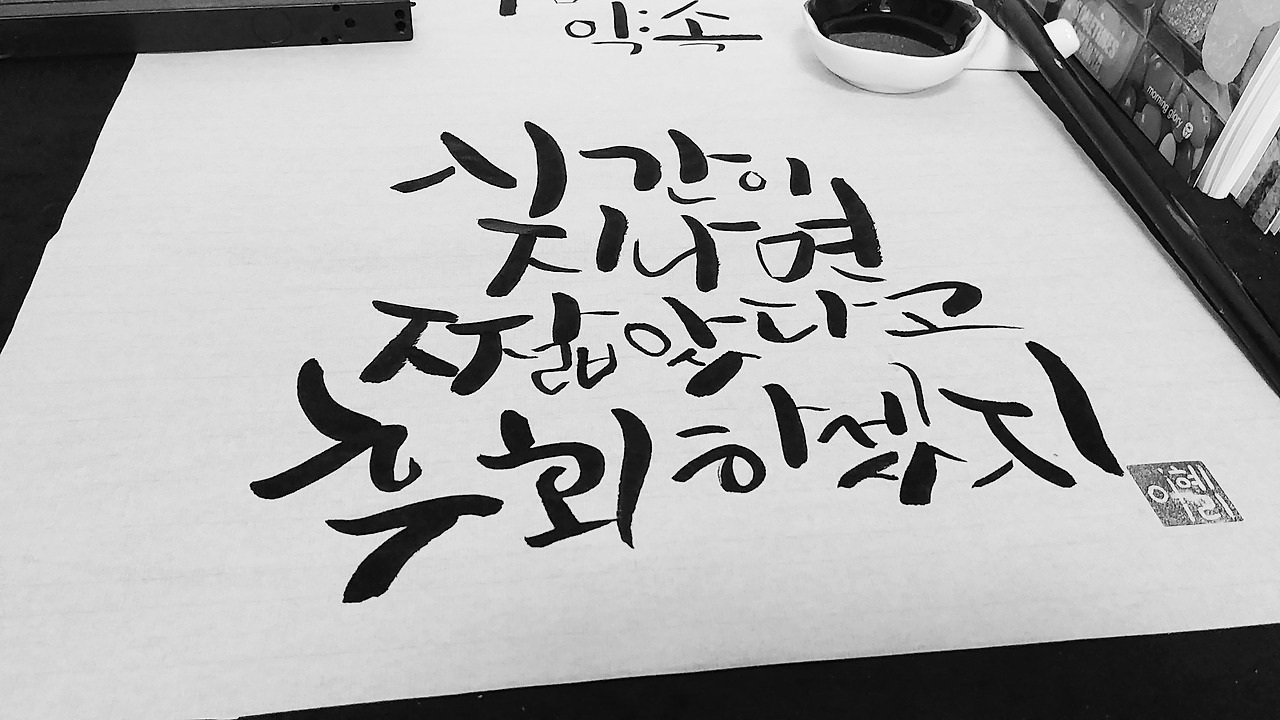 약속
시간이
지나면
짧았다고
후회하겠지
morning glory